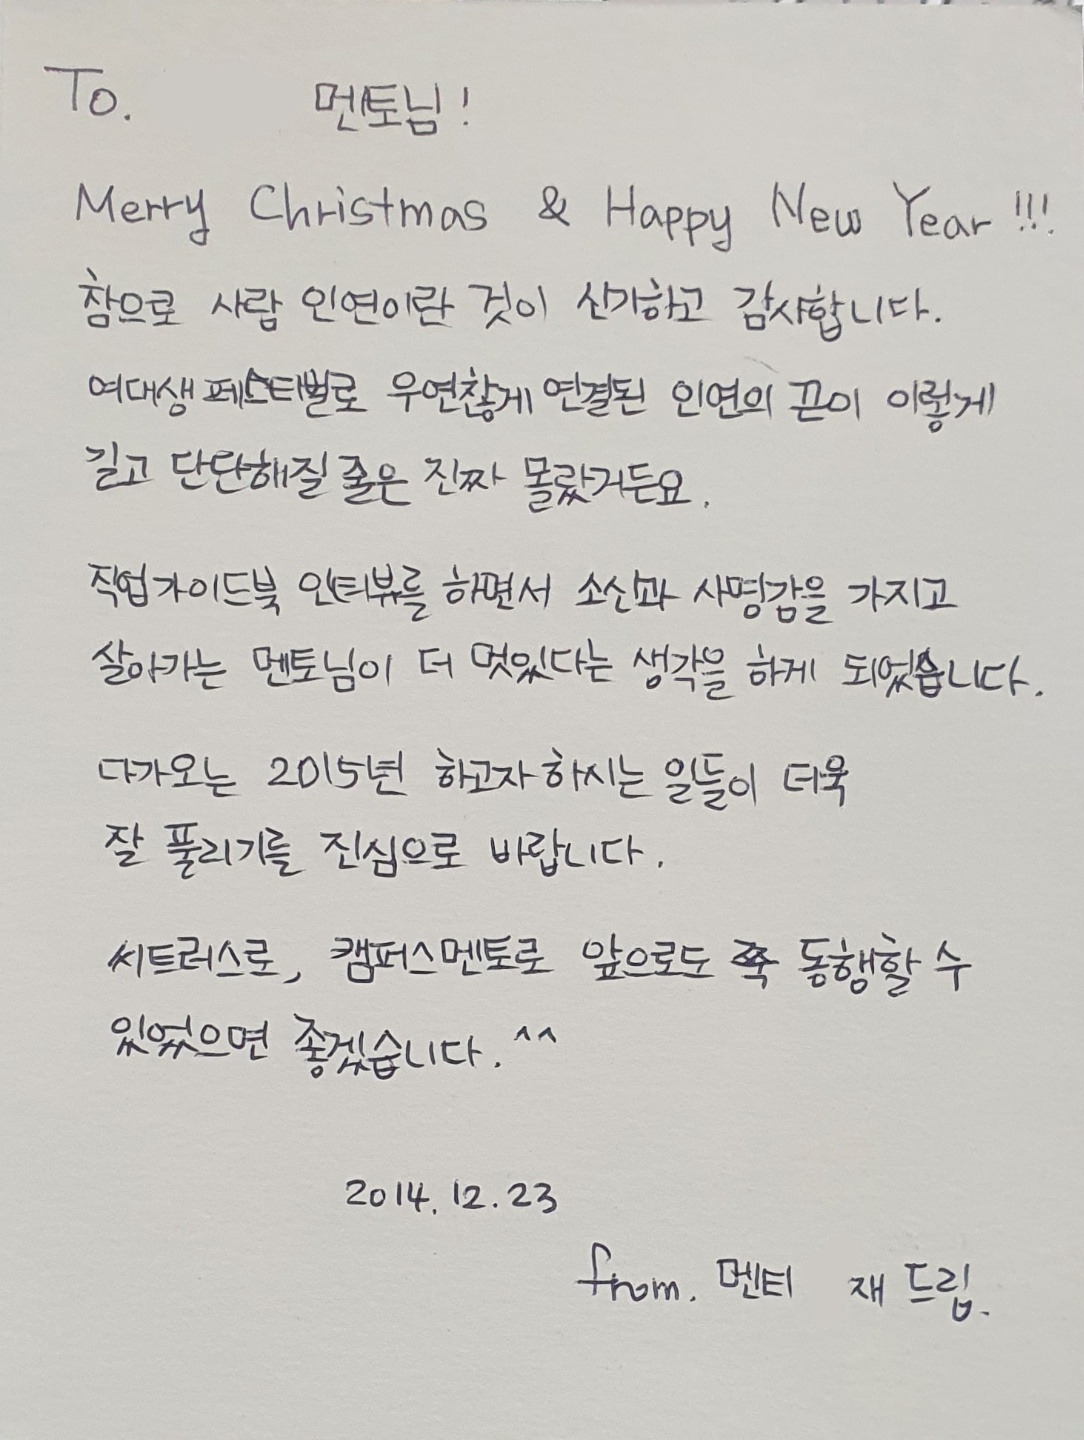 To. 멘토님!
Merry Christmas & Happy New Year !!!
참으로 사람 인연이란 것이 신기하고 감사합니다.
여대생 페스티벌로 우연찮게 연결된 인연의 끈이 이렇게
길고 단단해질 줄은 진짜 몰랐거든요.
직업가이드북 인터뷰를 하면서 소신과 사명감을 가지고
살아가는 멘토님이 더 멋있다는 생각을 하게 되었습니다.
다가오는 2015년 하고자 하시는 일들이 더욱
잘 풀리기를 진심으로 바랍니다.
씨트러스로, 캠퍼스멘토로 앞으로도 쭉 동행할 수
있었으면 좋겠습니다. ^^
2014. 12. 23
from. 멘티 재 드림.